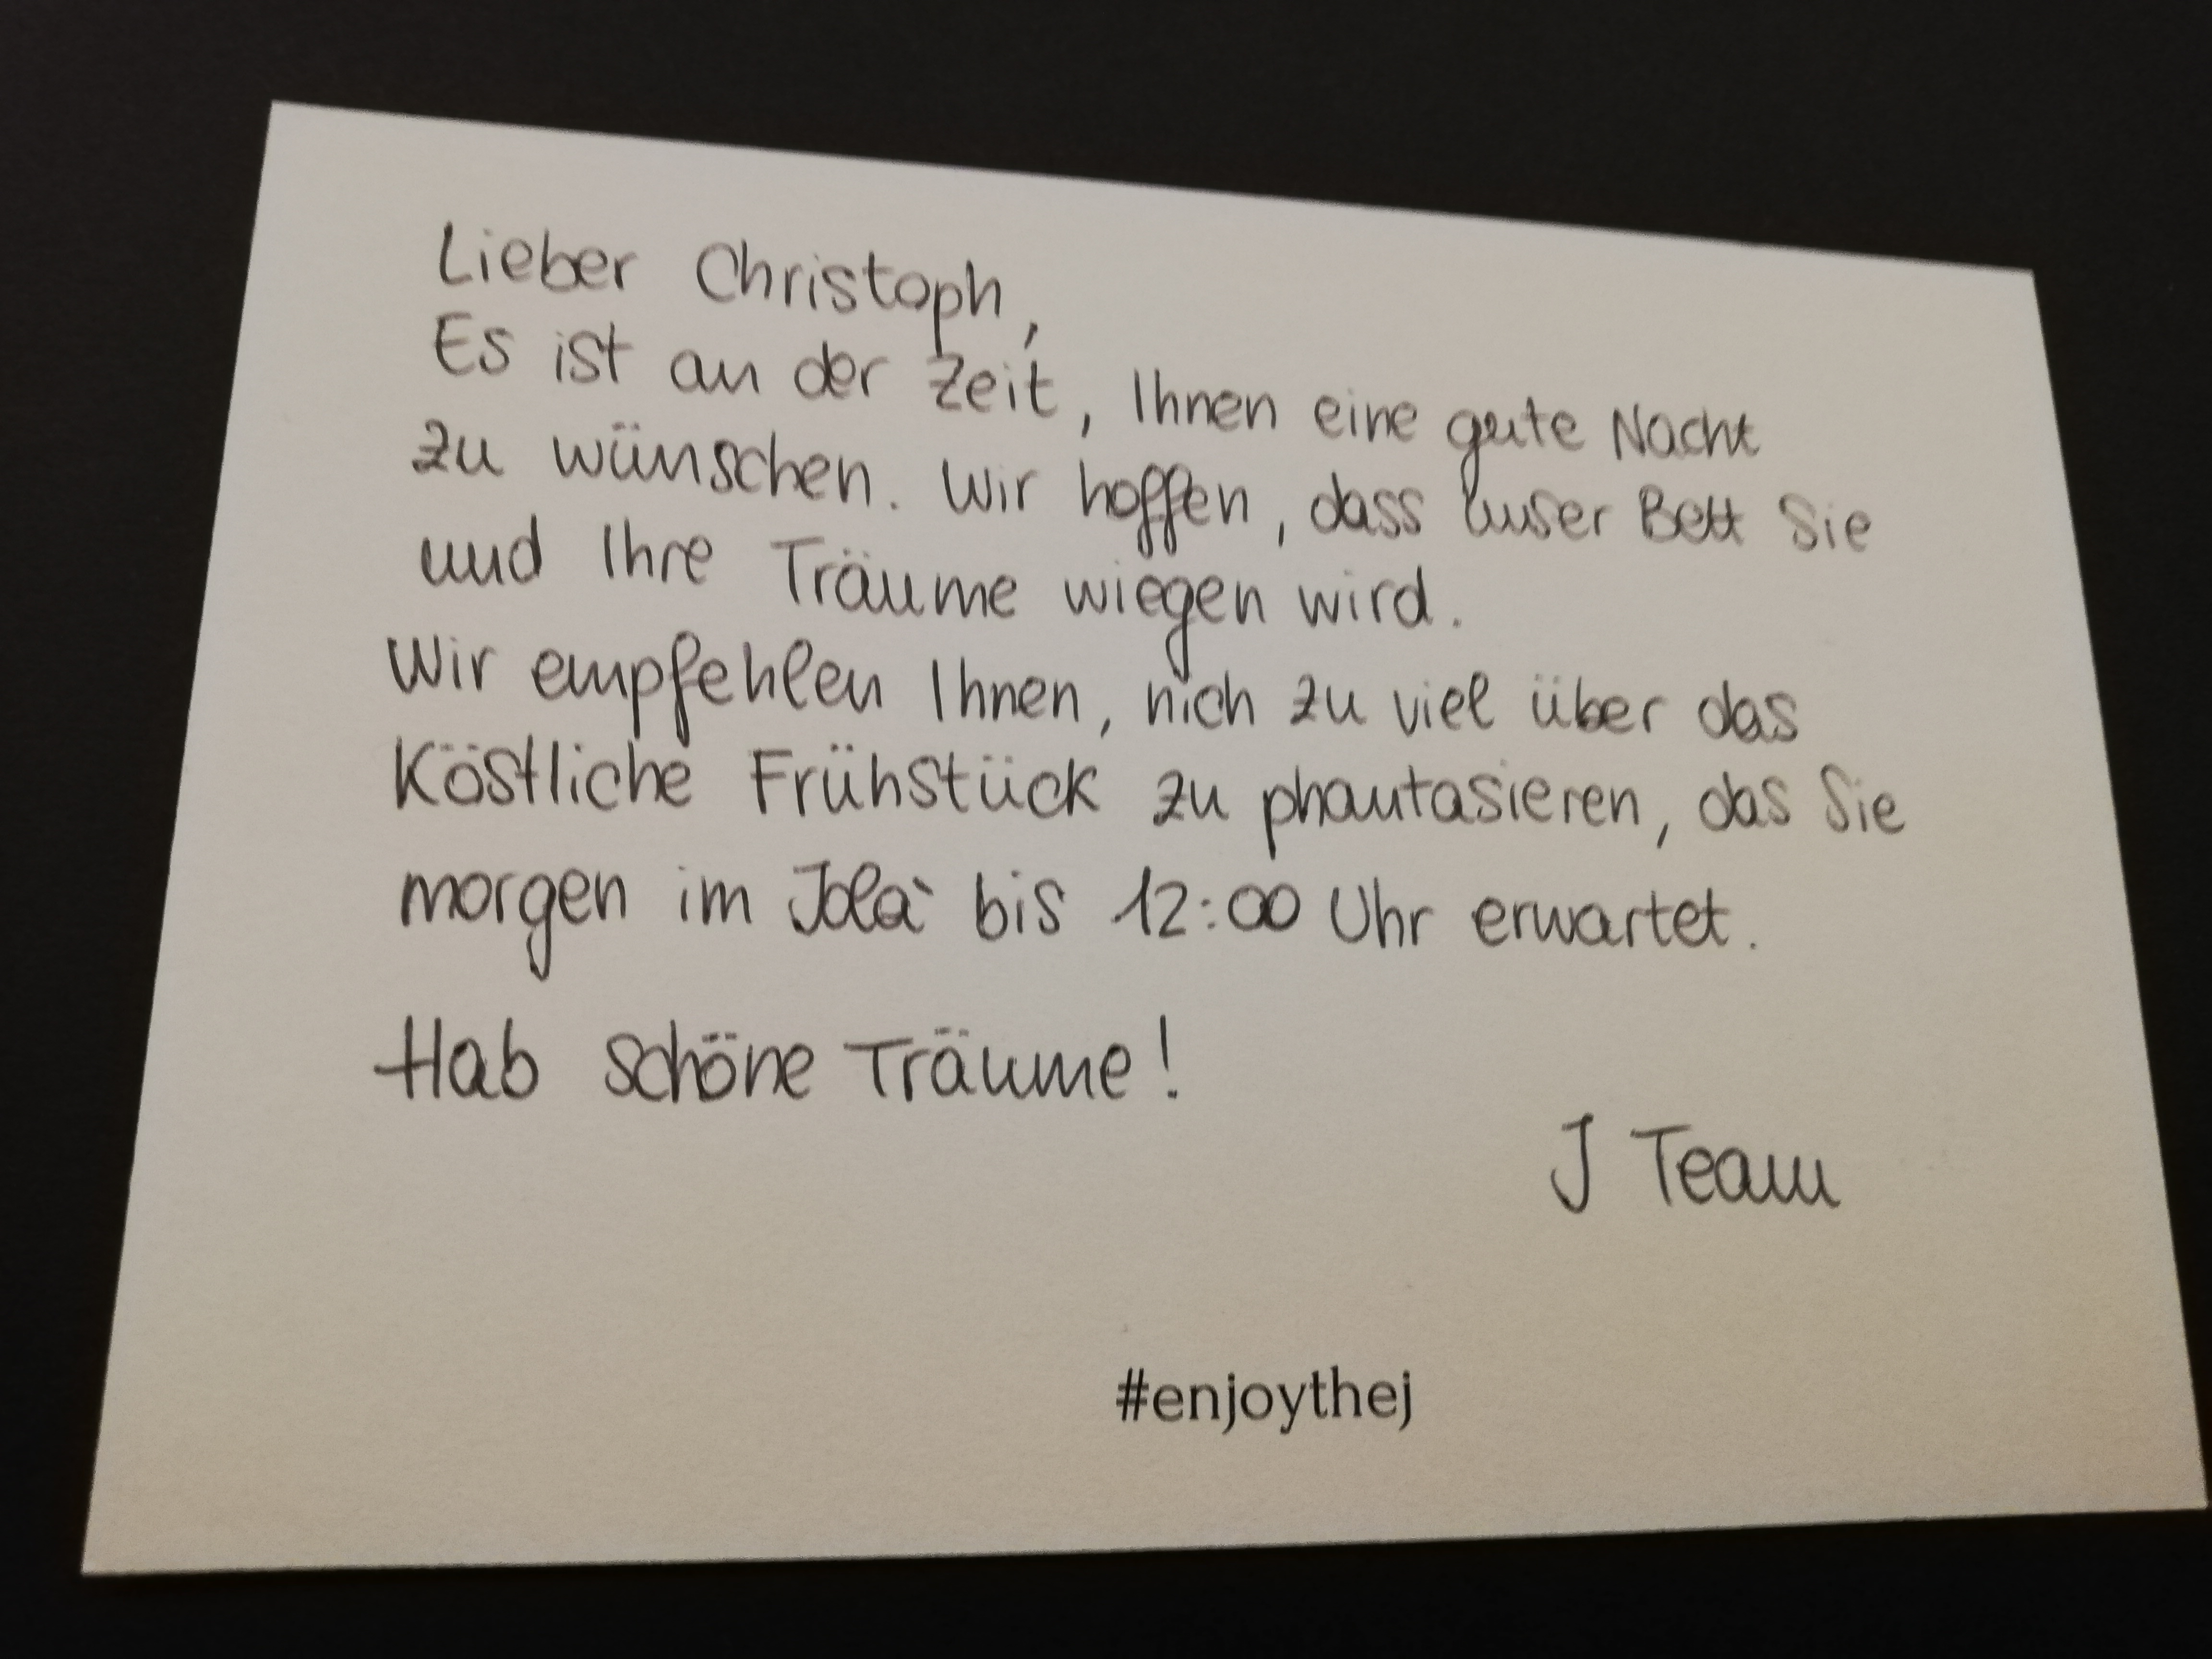 Lieber Christoph,
Es ist an der Zeit, Ihnen eine gute Nacht
zu wünschen. Wir hoffen, dass unser Bett Sie
und Ihre Träume wiegen wird.
Wir empfehlen Ihnen, nich zu viel über das
Köstliche Frühstück zu phantasieren, das Sie
morgen im Jolà bis 12:00 Uhr erwartet.
Hab schöne Träume!
J Team
#enjoythej